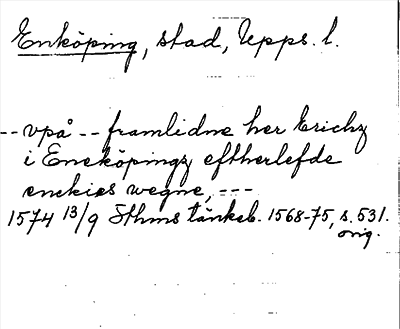 Enköping, stad, Upps. l.
-- vpå -- framlidne her Erichz
i Eneköpingz eftherlefde
enckies wegne, ---
1574 13/9 Sthms tänkeb. 1568-75, s. 531.
orig.